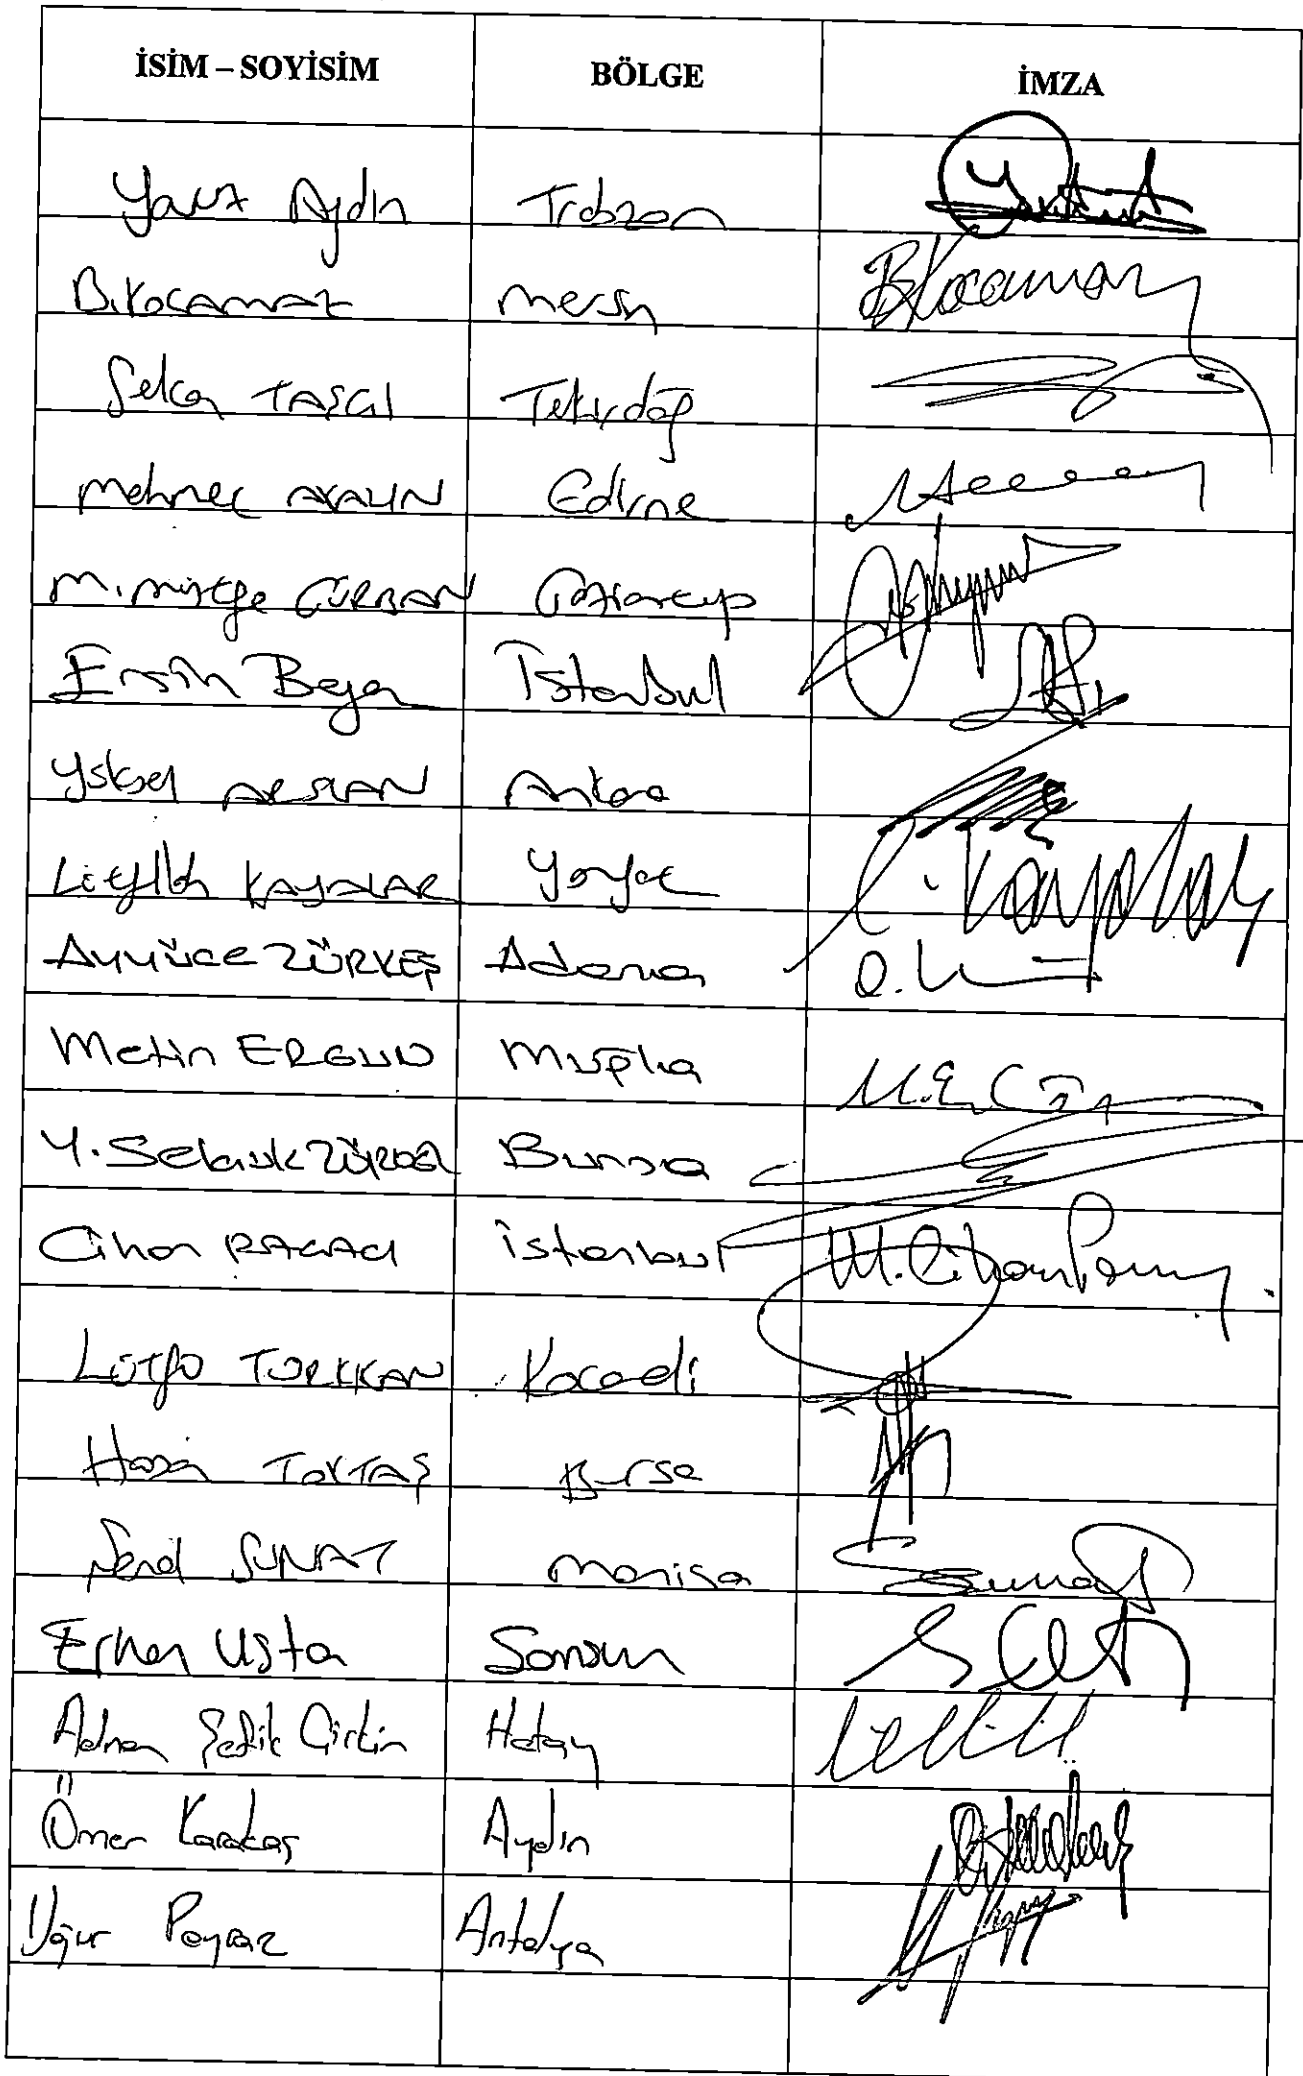 İSİM – SOYİSİM BÖLGE İMZA
Yavuz Aydın Trabzon
B. KOCAMAZ Mersin B Kocamaz
Selcan TAŞCI Tekirdağ
Mehmet AKALIN Edirne
M. Mustafa GÜRBAN Gaziantep
Ersin Beyaz İstanbul
Yüksel ARSLAN Ankara
Lütfullah KAYALAR Yozgat
Ayyüce TÜRKEŞ Adana
Metin ERGUN Muğla
Y. Selçuk TÜRKOĞL Bursa
Cihan PAÇACI İstanbul
Lütfü TÜRKKAN Kocaeli
Hasan TOKTAŞ Bursa
Şenol SUNAT Manisa
Erhan Usta Samsun
Adnan Şefik Çirkin Hatay
Ömer Karakaş Aydın
Uğur Poyraz Antalya